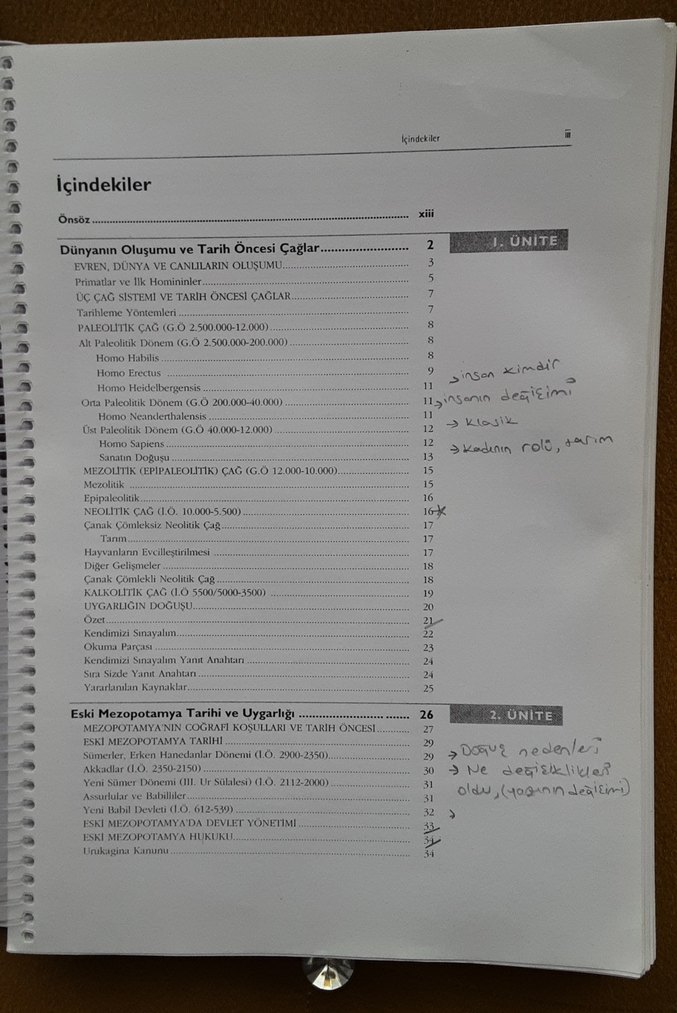 İçindekiler iii
İçindekiler
Önsöz xiii
Dünyanın Oluşumu ve Tarih Öncesi Çağlar 2 1. ÜNİTE
EVREN, DÜNYA VE CANLILARIN OLUŞUMU 3
Primatlar ve İlk Homininler 5
ÜÇ ÇAĞ SİSTEMİ VE TARİH ÖNCESİ ÇAĞLAR 7
Tarihleme Yöntemleri 7
PALEOLİTİK ÇAĞ (G.Ö 2.500.000-12.000) 8
Alt Paleolitik Dönem (G.Ö 2.500.000-200.000) 8
Homo Habilis 8
Homo Erectus 9 insan kimdir
Homo Heidelbergensis 11
Orta Paleolitik Dönem (G.Ö 200.000-40.000) 11 insanın değişimi
Homo Neanderthalensis 11 → klasik
Üst Paleolitik Dönem (G.Ö 40.000-12.000) 12
Homo Sapiens 12 → kadının rolü, tarım
Sanatın Doğuşu 13
MEZOLİTİK (EPİPALEOLİTİK) ÇAĞ (G.Ö 12.000-10.000) 15
Mezolitik 15
Epipaleolitik 16
NEOLİTİK ÇAĞ (İ.Ö. 10.000-5.500) 16
Çanak Çömleksiz Neolitik Çağ 17
Tarım 17
Hayvanların Evcilleştirilmesi 17
Diğer Gelişmeler 18
Çanak Çömlekli Neolitik Çağ 18
KALKOLİTİK ÇAĞ (İ.Ö 5500/5000-3500) 19
UYGARLIĞIN DOĞUŞU 20
Özet 21
Kendimizi Sınayalım 22
Okuma Parçası 23
Kendimizi Sınayalım Yanıt Anahtarı 24
Sıra Sizde Yanıt Anahtarı 24
Yararlanılan Kaynaklar 25
Eski Mezopotamya Tarihi ve Uygarlığı 26 2. ÜNİTE
MEZOPOTAMYA'NIN COĞRAFİ KOŞULLARI VE TARİH ÖNCESİ 27
ESKİ MEZOPOTAMYA TARİHİ 29
Sümerler, Erken Hanedanlar Dönemi (İ.Ö. 2900-2350) 29 → Doğuş nedenleri
Akkadlar (İ.Ö. 2350-2150) 30 → Ne değişiklikler
Yeni Sümer Dönemi (III. Ur Sülalesi) (İ.Ö. 2112-2000) 31 oldu, (yaşanın değişimi)
Assurlular ve Babilliler 31
Yeni Babil Devleti (İ.Ö. 612-539) 32
ESKİ MEZOPOTAMYA'DA DEVLET YÖNETİMİ 33
ESKİ MEZOPOTAMYA HUKUKU 34
Urukagina Kanunu 34